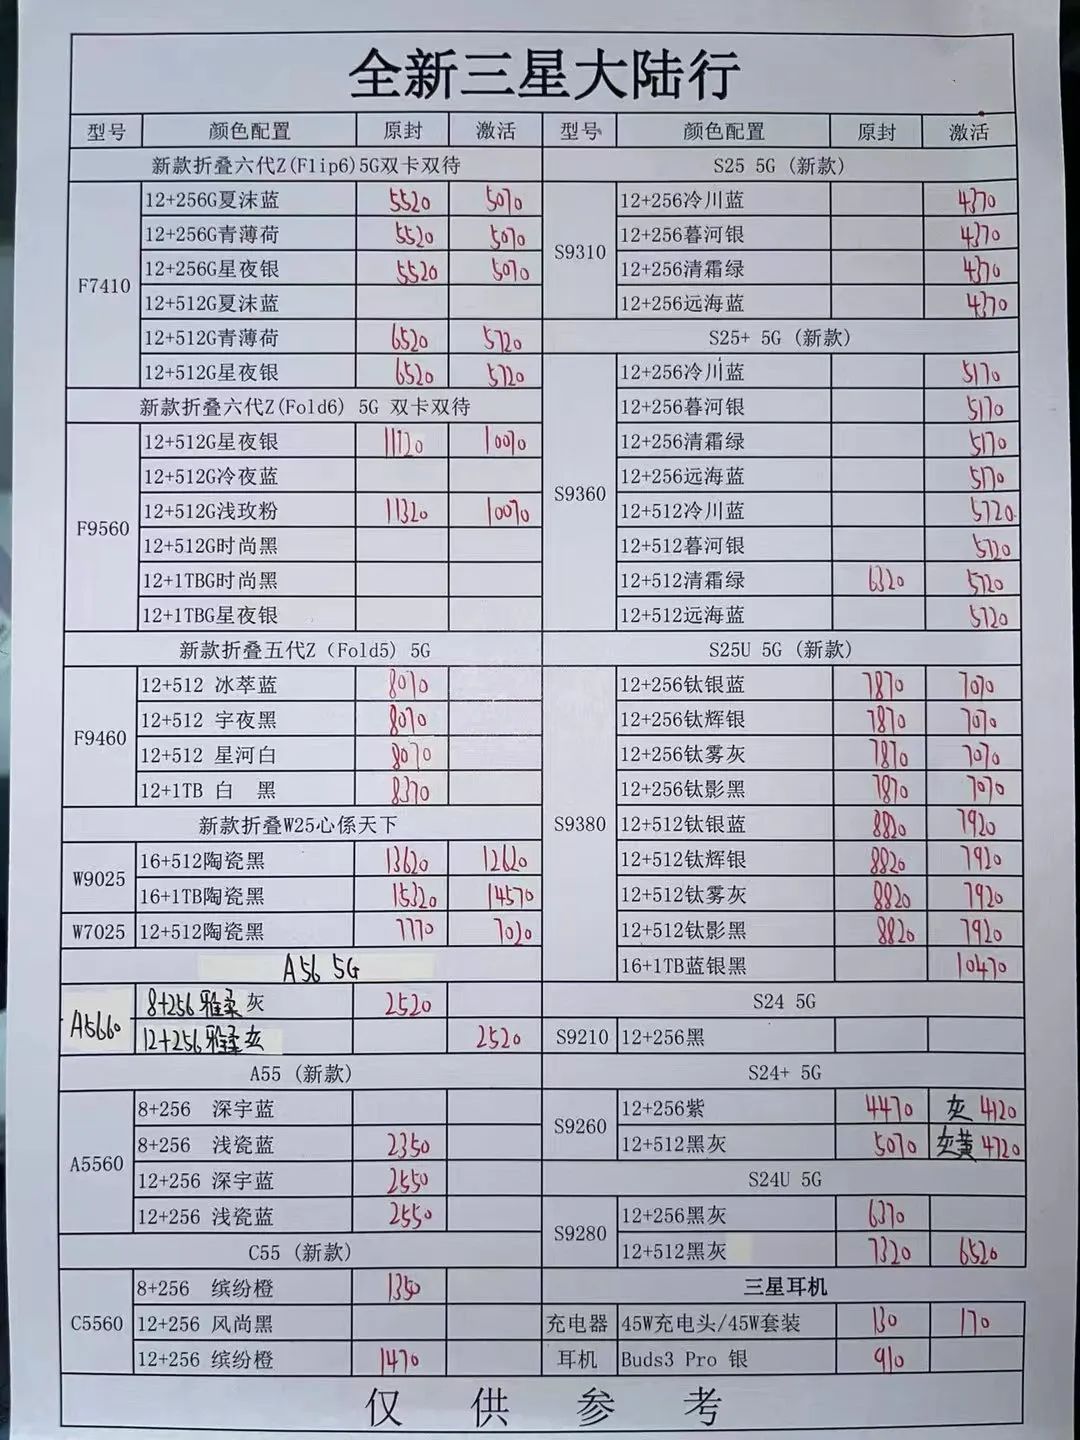 全新三星大陆行
型号 颜色配置 原封 激活 型号 颜色配置 原封 激活
新款折叠六代Z(Flip6)5G双卡双待
F7410
12+256G夏沫蓝 5520 5070
12+256G青薄荷 5520 5070
12+256G星夜银 5520 5070
12+512G夏沫蓝
12+512G青薄荷 6520 5720
12+512G星夜银 6520 5720
新款折叠六代Z(Fold6) 5G 双卡双待
F9560
12+512G星夜银 11720 10070
12+512G冷夜蓝
12+512G浅玫粉 11320 10070
12+512G时尚黑
12+1TBG时尚黑
12+1TBG星夜银
新款折叠五代Z (Fold5) 5G
F9460
12+512 冰萃蓝 8070
12+512 宇夜黑 8070
12+512 星河白 8070
12+1TB 白 黑 8370
新款折叠W25心係天下
W9025
16+512陶瓷黑 13620 12620
16+1TB陶瓷黑 15320 14570
W7025 12+512陶瓷黑 7770 7020
A56 5G
A5660
8+256 雅柔灰 2520
12+256雅柔灰 2520
A55 (新款)
A5560
8+256 深宇蓝
8+256 浅瓷蓝 2350
12+256 深宇蓝 2550
12+256 浅瓷蓝 2550
C55 (新款)
C5560
8+256 缤纷橙 1350
12+256 风尚黑
12+256 缤纷橙 1470
S25 5G (新款)
S9310
12+256冷川蓝 4370
12+256暮河银 4370
12+256清霜绿 4370
12+256远海蓝 4370
S25+ 5G (新款)
S9360
12+256冷川蓝 5170
12+256暮河银 5170
12+256清霜绿 5170
12+256远海蓝 5170
12+512冷川蓝 5720
12+512暮河银 5720
12+512清霜绿 6320 5720
12+512远海蓝 5720
S25U 5G (新款)
S9380
12+256钛银蓝 7870 7070
12+256钛辉银 7870 7070
12+256钛雾灰 7870 7070
12+256钛影黑 7870 7070
12+512钛银蓝 8820 7920
12+512钛辉银 8820 7920
12+512钛雾灰 8820 7920
12+512钛影黑 8820 7920
16+1TB蓝银黑 10470
S24 5G
S9210 12+256黑
S24+ 5G
S9260
12+256紫 4470 灰 4120
12+512黑灰 5070 灰黄 4720
S24U 5G
S9280
12+256黑灰 6370
12+512黑灰 7320 6520
三星耳机
充电器 45W充电头/45W套装 130 170
耳机 Buds3 Pro 银 910
仅供参考